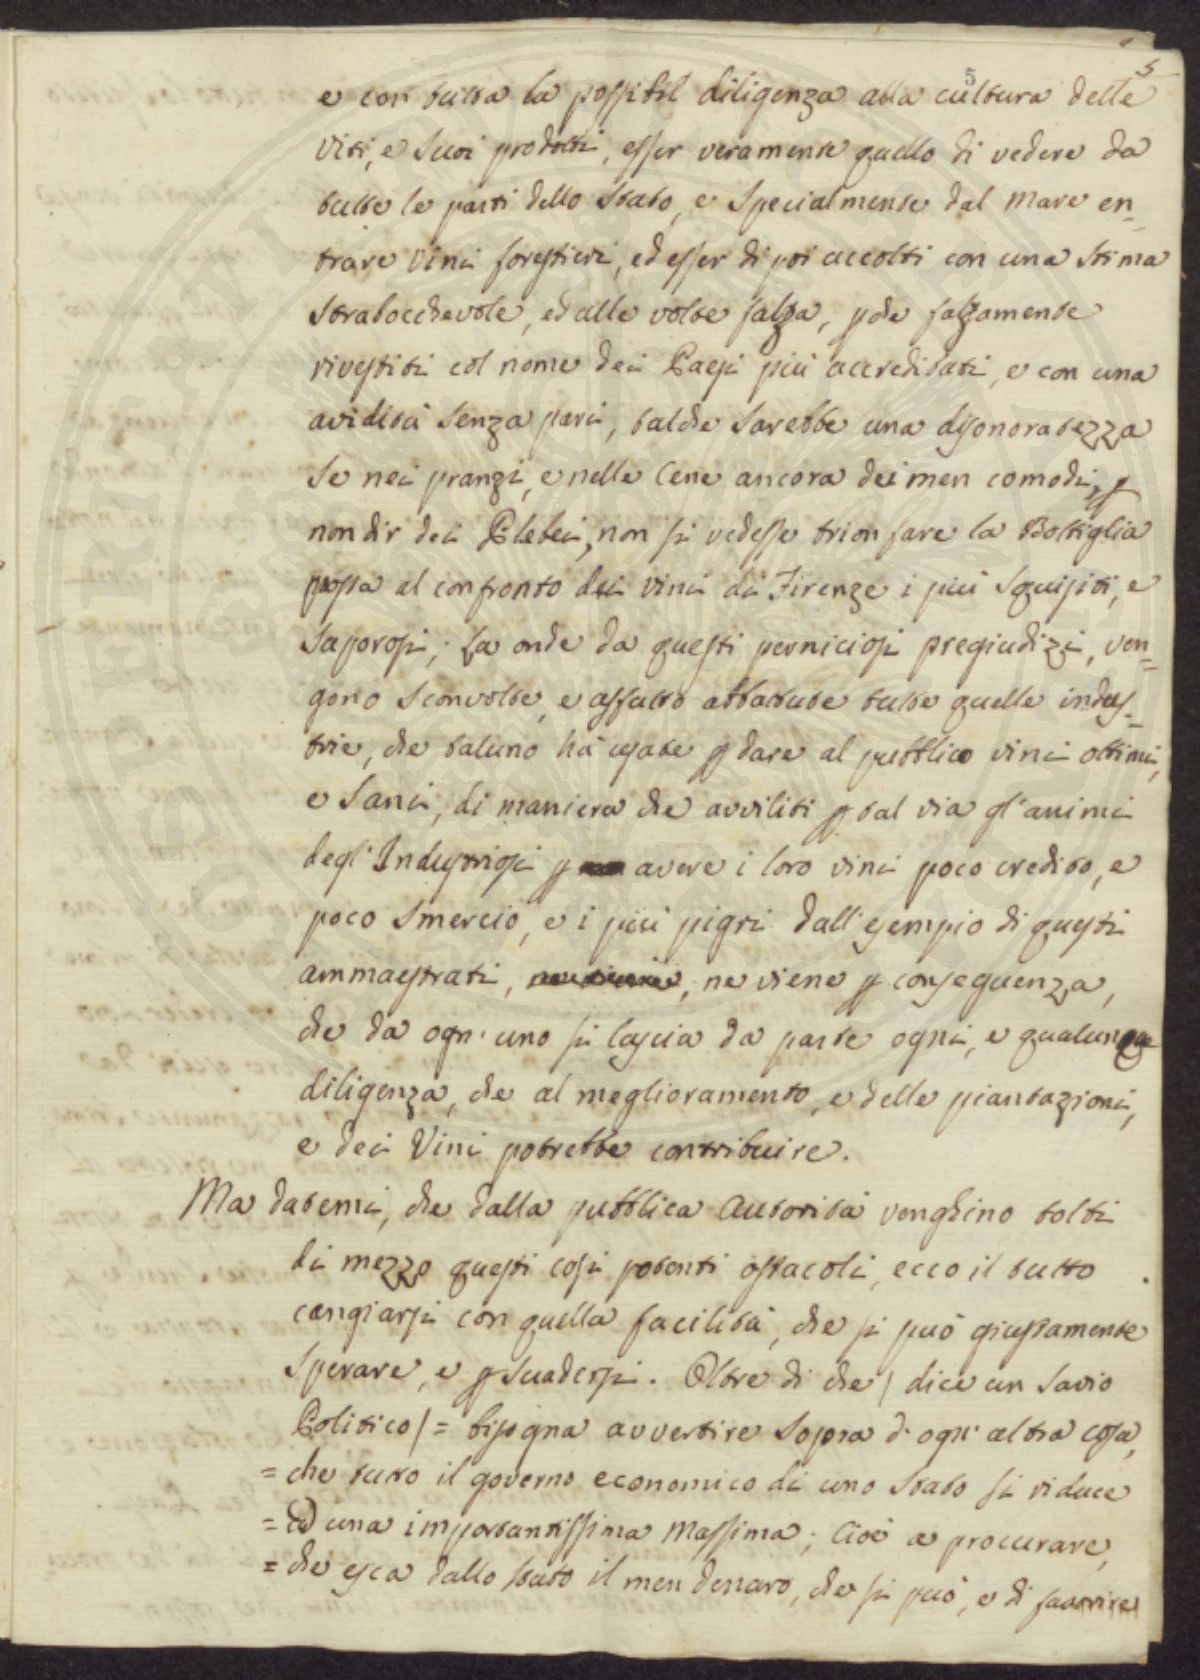 5
5
e con tutta la possibil diligenza alla cultura delle
viti, e suoi prodotti, esser veramente quello di vedere da
tutte le parti dello Stato, e specialmente dal Mare en=
trare vini forestieri, ed esser di poi accolti con una stima
strabocchevole, ed alle volte falza, pche falzamente
rivestiti col nome dei Paesi più accreditati, e con una
avidità senza pari, talche sarebbe una disonoratezza
se nei pranzi, e nelle Cene ancora dei men comodi, p
non dir dei Plebei, non si vedesse trionfare la Bottiglia
posta al confronto dei vini di Firenze i più squisiti, e
saporosi; La onde da questi perniciosi pregiudizi, ven=
gono sconvolte, e affatto abbattute tutte quelle indus=
trie, che taluno hà usate p dare al pubblico vini ottimi,
e sani, di maniera che avviliti p tal via gl'animi
degl'Industriosi p avere i loro vini poco credito, e
poco smercio, e i più pigri dall'esempio di questi
ammaestrati, ne viene p conseguenza,
che da ogn'uno si lascia da parte ogni, e qualunque
diligenza, che al meglioramento, e delle piantazioni,
e dei Vini potrebbe contribuire.
Ma datemi, che dalla pubblica Autorità venghino tolti
di mezzo questi così potenti ostacoli, ecco il tutto
cangiarsi con quella facilità, che si può giustamente
sperare, e psuadersi. Oltre di che / dice un savio
Politico / = bisogna avvertire sopra d'ogn'altra cosa,
= che tutto il governo economico di uno Stato si riduce
= ad una importantissima Massima; Cioè a procurare,
= che esca dallo stato il men denaro, che si può, e di favorire